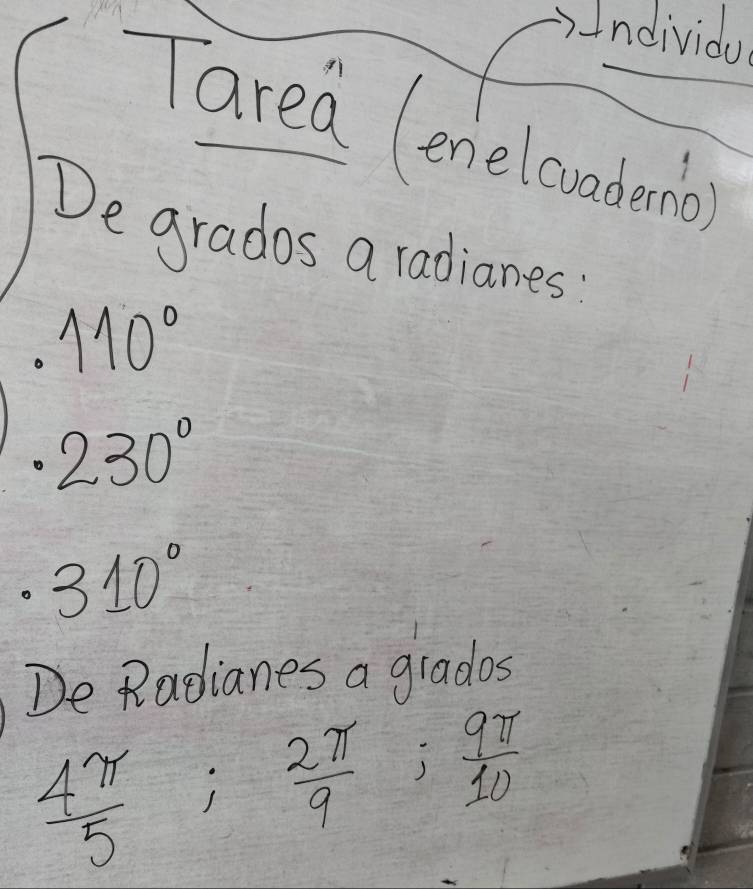 Tarea (en el cuaderno)
De grados a radianes:
. 110°
. 230°
. 310°
De Radianes a grados
4π/5 ; 2π/9 ; 9π/10